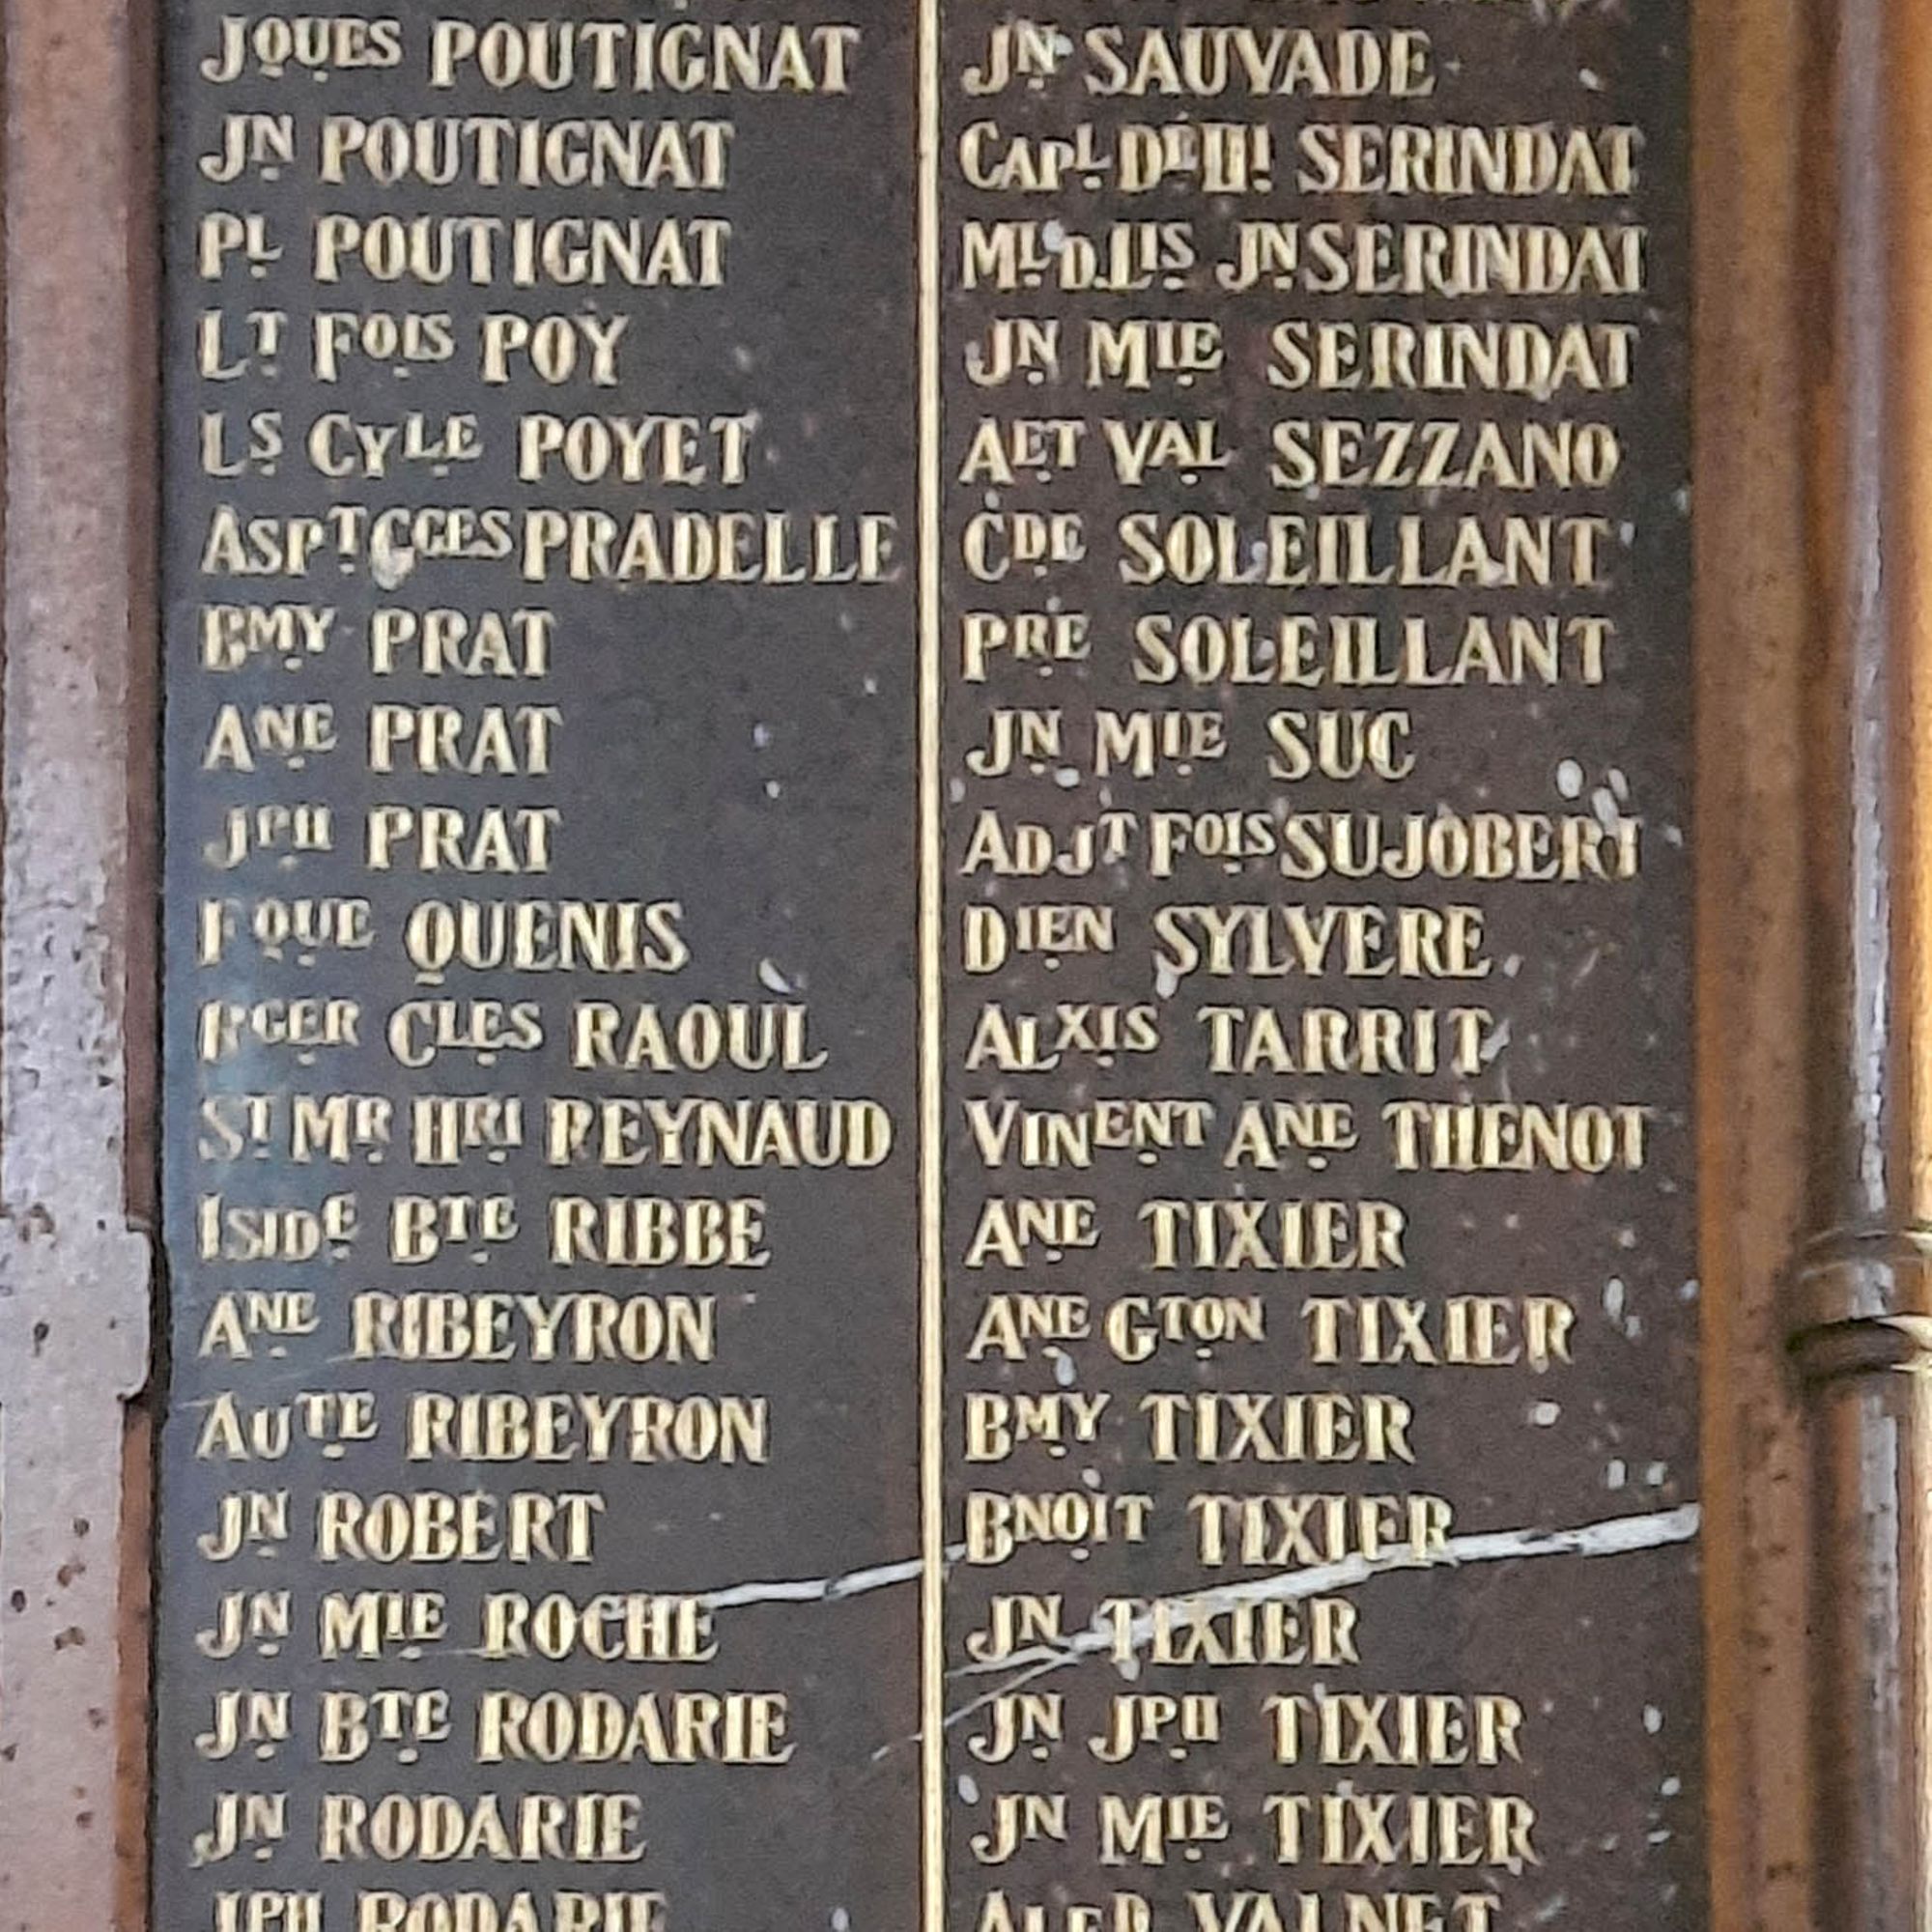 JQUES POUTIGNAT
JN POUTIGNAT
PL POUTIGNAT
LT FOIS POY
LS CYLE POYET
ASPT GGES PRADELLE
BMY PRAT
ANE PRAT
JPH PRAT
FQUE QUENIS
RGER CLES RAOUL
ST MR HRI REYNAUD
ISIDE BTE RIBBE
ANE RIBEYRON
AUTE RIBEYRON
JN ROBERT
JN MIE ROCHE
JN BTE RODARIE
JN RODARIE
JPH RODARIE
JN SAUVADE
CAPL SERINDAT
JN SERINDAT
JN MIE SERINDAT
AET VAL SEZZANO
CDE SOLEILLANT
PRE SOLEILLANT
JN MIE SUC
ADJT FOIS SUJOBERT
DIEN SYLVERE
ALXIS TARRIT
VINENT ANE THENOT
ANE TIXIER
ANE GTON TIXIER
BMY TIXIER
BNOIT TIXIER
JN TIXIER
JN JPH TIXIER
JN MIE TIXIER
ALFD VALNET